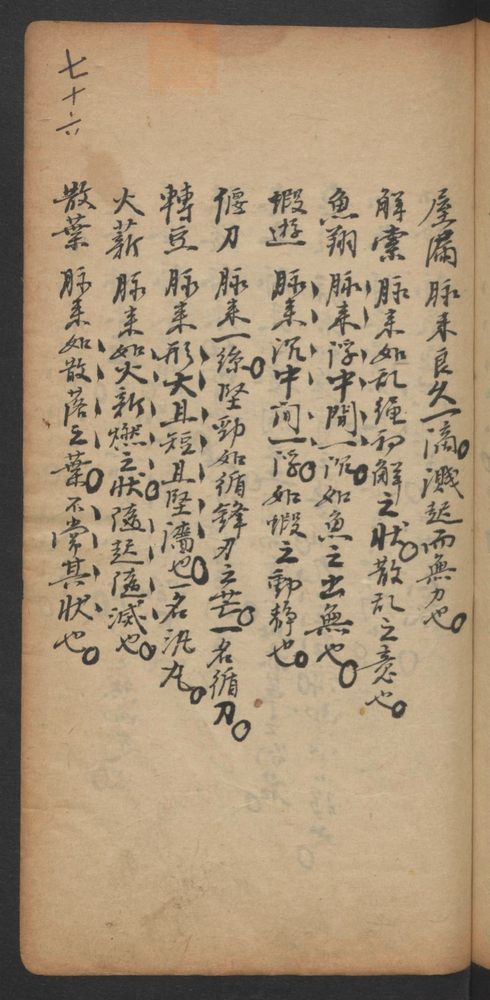 屋漏 脉来良久一滴溅起而無力也
解索 脉来如乱绳初解之状散乱之意也
魚翔 脉来浮中間一沉如魚之出無也
蝦遊 脉来沉中间一浮如蝦之動靜也
偃刀 脉来一絲堅勁如循鋒刀之芒一名循刀
轉豆 脉来形大且短且堅濇也一名汎丸
火薪 脉来如火新燃之狀隨起隨滅也
散葉 脉来如散落之葉不常其狀也
七十六